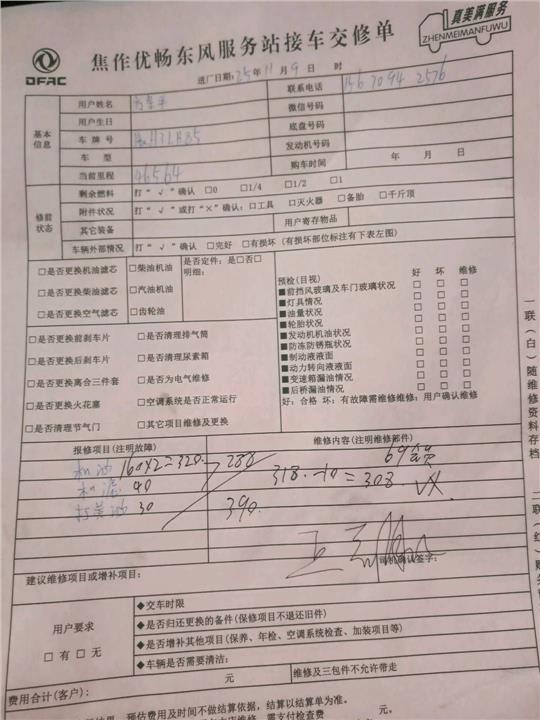 DFAC
焦作优畅东风服务站接车交修单
真美满服务
ZHENMEIMANFUWU
进厂日期：25年11月9日 时
基本信息
用户姓名
联系电话 156 7094 2576
用户生日
微信号码
车牌号
底盘号码
车型
发动机号码
当前里程 46564
购车时间 年 月 日
修前状态
剩余燃料 打“√”确认 □0 □1/4 □1/2 □1
附件状况 打“√”或打“×”确认：□工具 □灭火器 □备胎 □千斤顶
其它装备
用户寄存物品
车辆外部情况 打“√”确认 □完好 □有损坏（有损坏部位标注有下表左图）
□是否更换机油滤芯 □柴油机油 是否定件：□是□否
明细：
□是否更换柴油滤芯 □汽油机油
□是否更换空气滤芯 □齿轮油
预检（目视） 好 坏 维修
■前挡风玻璃及车门玻璃状况 □ □ □
■灯具情况 □ □ □
■油量状况 □ □ □
■轮胎状况 □ □ □
■发动机机油状况 □ □ □
■防冻防锈瓶状况 □ □ □
■制动液液面 □ □ □
■动力转向液液面 □ □ □
■变速箱漏油情况 □ □ □
■后桥漏油情况 □ □ □
好：合格 坏：有故障需维修维修：用户确认维修
□是否更换前刹车片 □是否清理排气筒
□是否更换后刹车片 □是否清理尿素箱
□是否更换离合三件套 □是否为电气维修
□是否更换火花塞 □空调系统是否正常运行
□是否清理节气门 □其它项目维修及更换
报修项目（注明故障）
维修内容（注明维修部件）
机油 160×2=320. 288
机滤 40
318.-10=308.
30
390.
司机确认签字：
建议维修项目或增补项目：
用户要求
□有 □无
◆交车时限
◆是否归还更换的备件（保修项目不退还旧件）
◆是否增补其他项目（保养、年检、空调系统检查、加装项目等）
◆车辆是否需要清洁：
元
维修及三包件不允许带走
费用合计（客户）：
预估费用及时间不做结算依据，结算以结算单为准。
需支付检查费 元。
一联（白）随维修资料存档
二联（红）